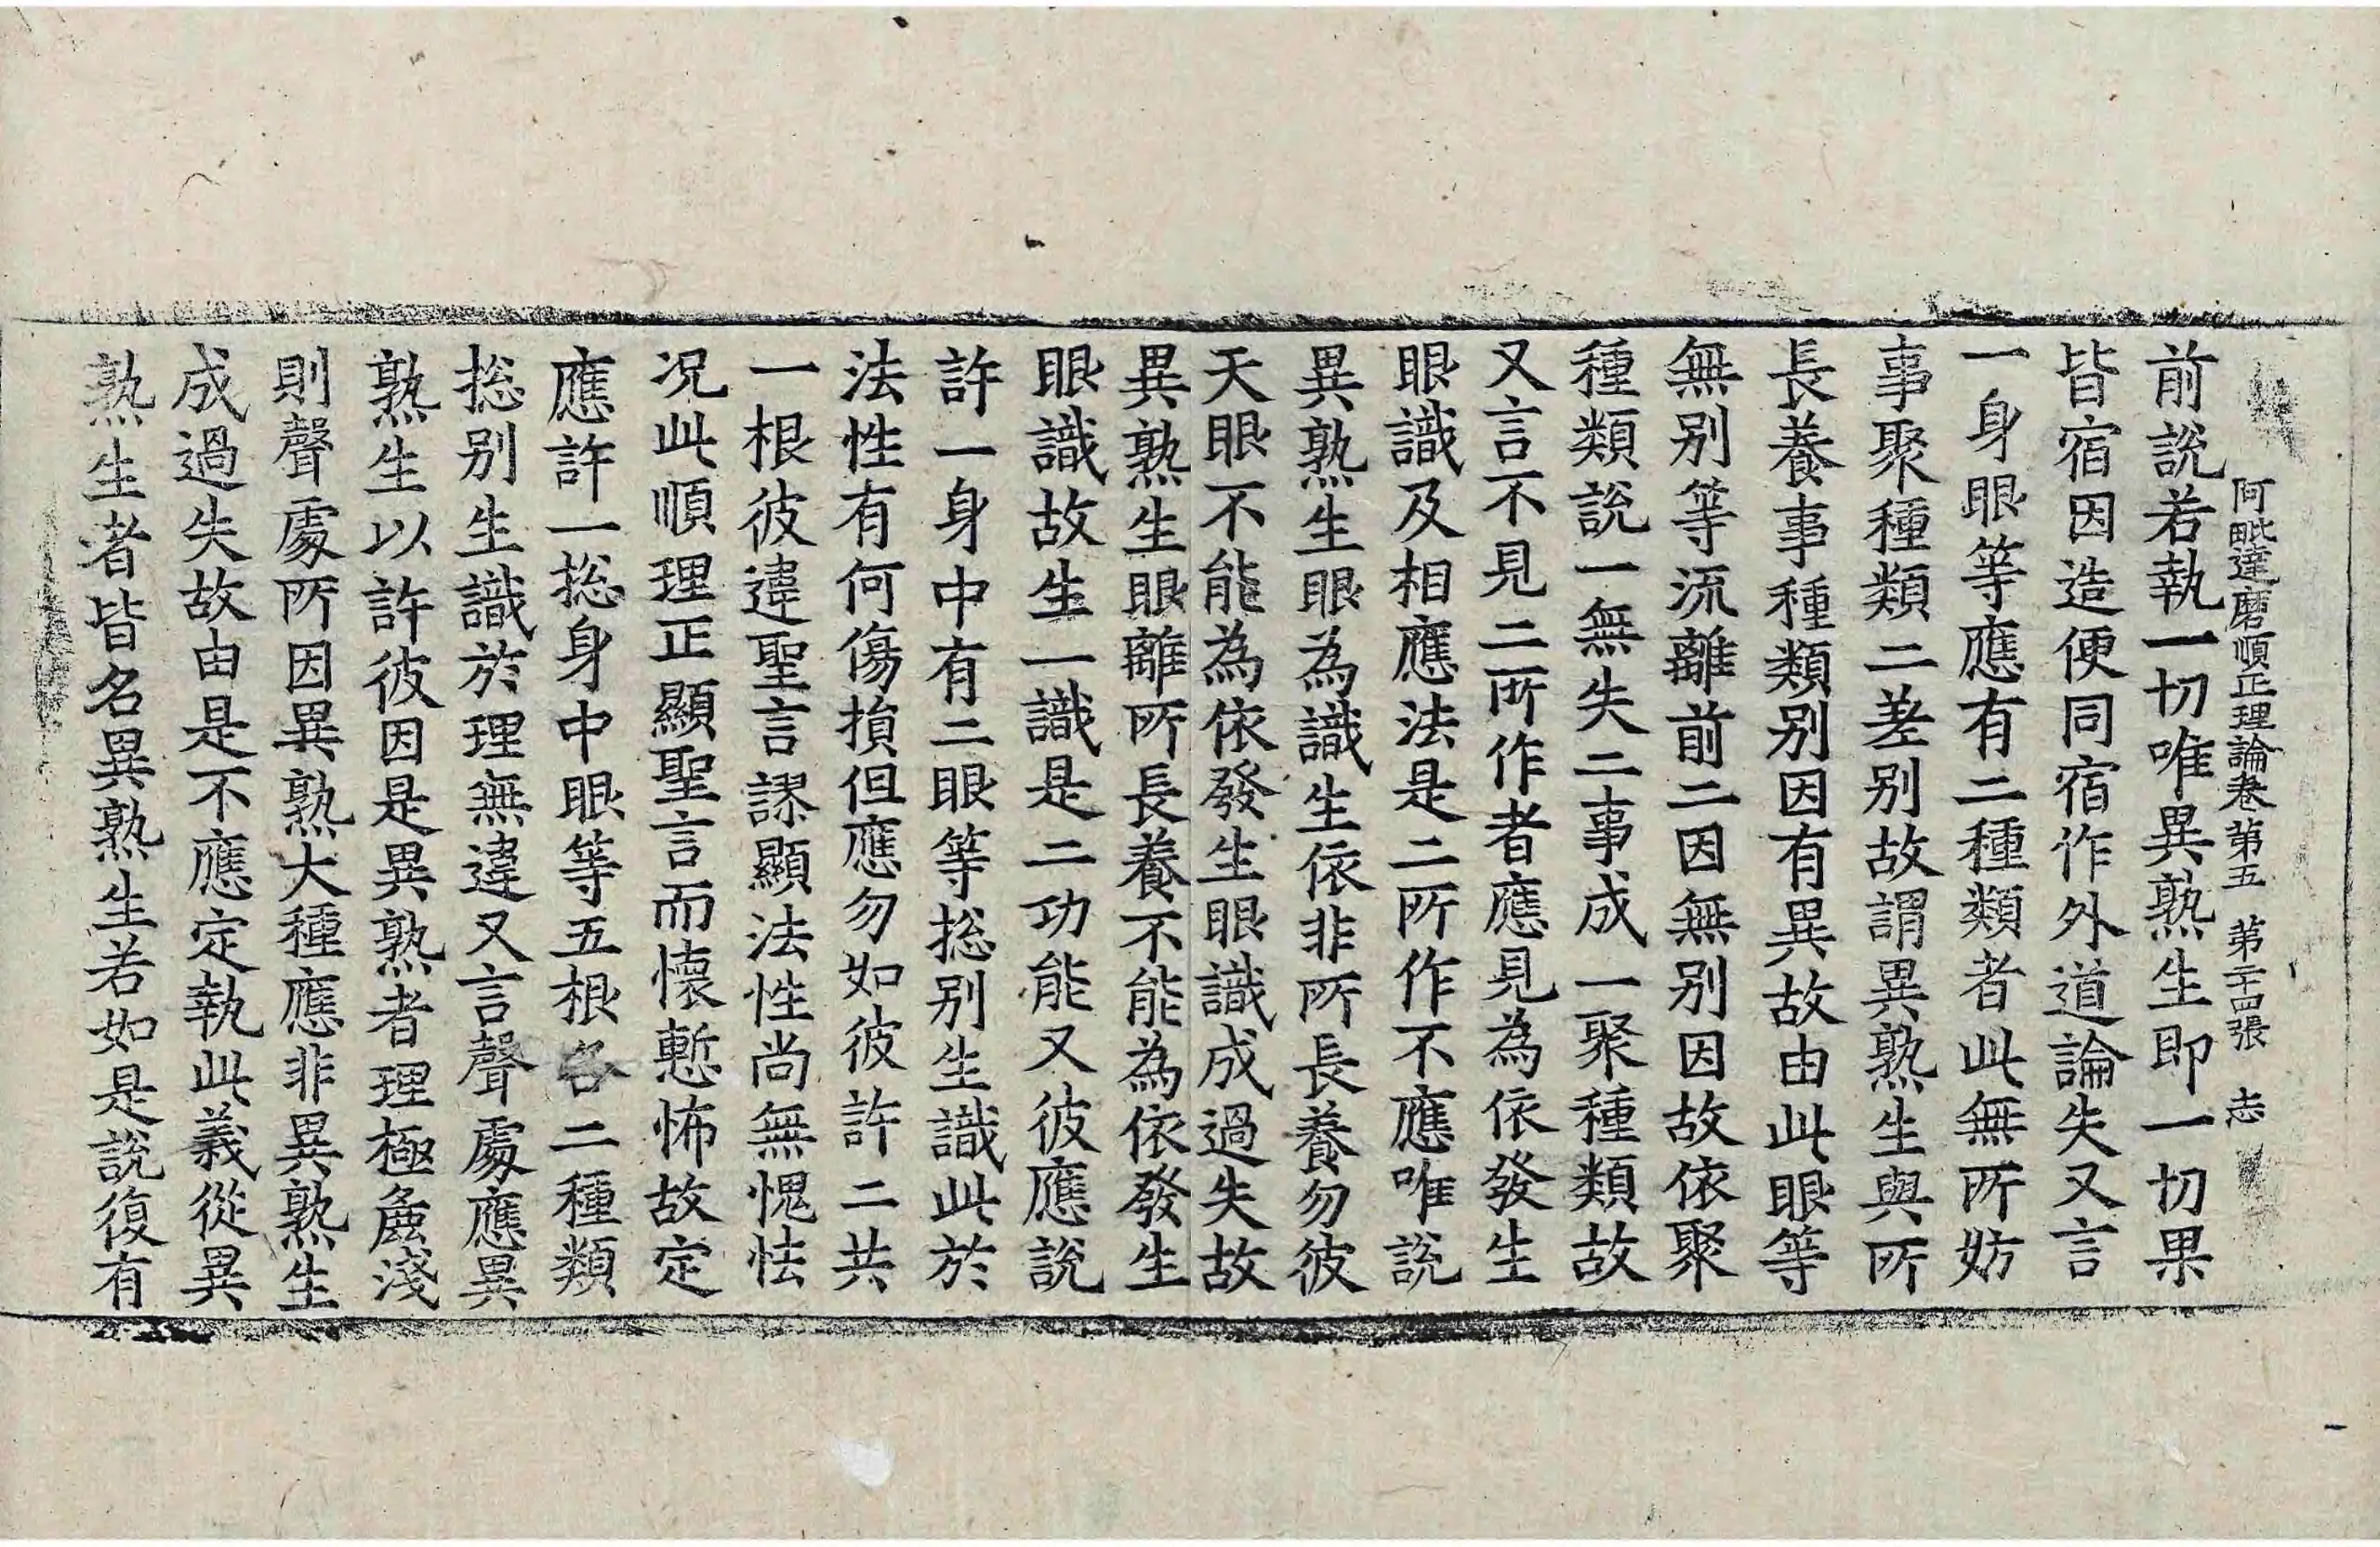 阿毗達磨順正理論卷第五 第二十四張 志
前說若執一切唯異熟生即一切果
皆宿因造便同宿作外道論失又言
一身眼等應有二種類者此無所妨
事聚種類二差别故謂異熟生與所
長養事種類别因有異故由此眼等
無别等流離前二因無别因故依聚
種類說一無失二事成一聚種類故
又言不見二所作者應見為依發生
眼識及相應法是二所作不應唯說
異熟生眼為識生依非所長養勿彼
天眼不能為依發生眼識成過失故
異熟生眼離所長養不能為依發生
眼識故生一識是二功能又彼應說
許一身中有二眼等捴别生識此於
法性有何傷損但應勿如彼許二共
一根彼違聖言謬顯法性尚無愧怯
况此順理正顯聖言而懷慙怖故定
應許一捴身中眼等五根各二種類
捴别生識於理無違又言聲處應異
熟生以許彼因是異熟者理極麁淺
則聲處所因異熟大種應非異熟生
成過失故由是不應定執此義從異
熟生者皆名異熟生若如是說復有